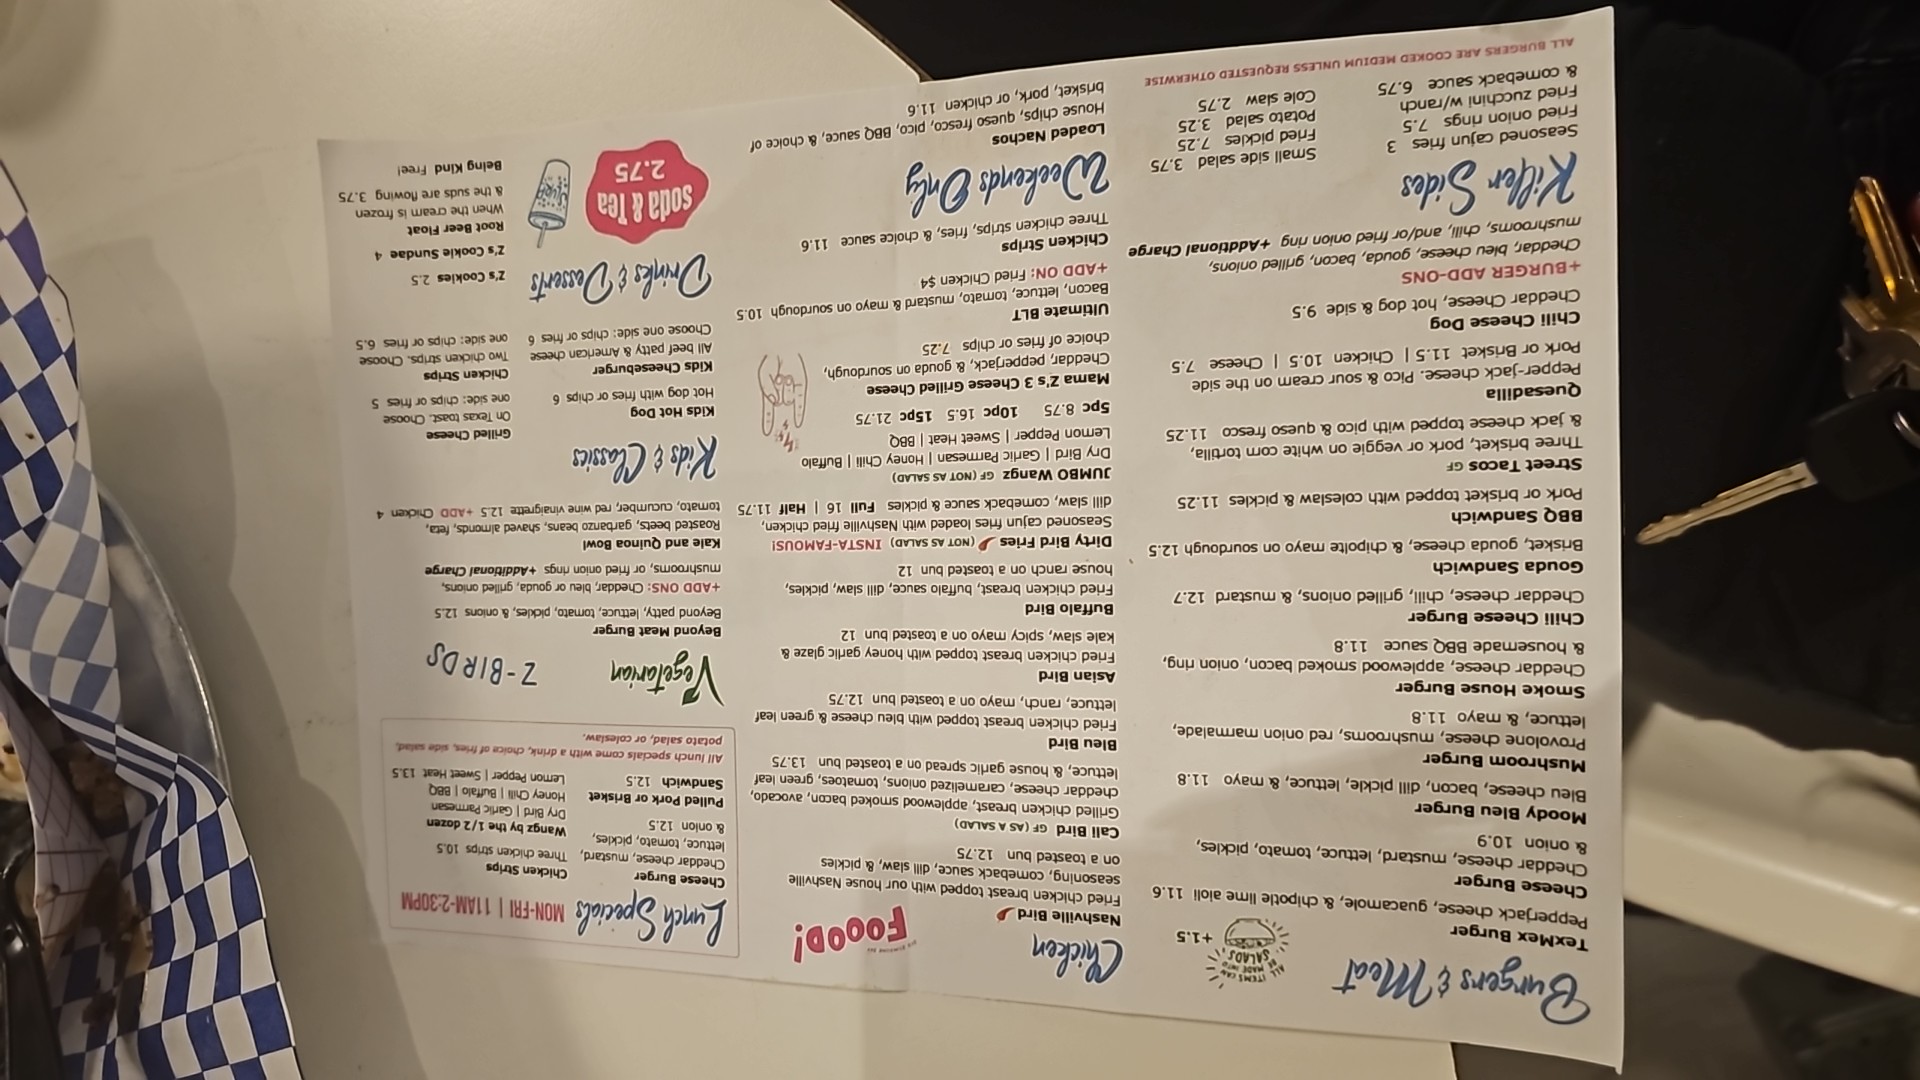 Burgers & Meat
ALL ITEMS CAN BE MADE INTO SALADS
+1.5
TexMex Burger
Pepperjack cheese, guacamole, & chipotle lime aioli 11.6
Cheese Burger
Cheddar cheese, mustard, lettuce, tomato, pickles,
& onion 10.9
Moody Bleu Burger
Bleu cheese, bacon, dill pickle, lettuce, & mayo 11.8
Mushroom Burger
Provolone cheese, mushrooms, red onion marmalade,
lettuce, & mayo 11.8
Smoke House Burger
Cheddar cheese, applewood smoked bacon, onion ring,
& housemade BBQ sauce 11.8
Chili Cheese Burger
Cheddar cheese, chili, grilled onions, & mustard 12.7
Gouda Sandwich
Brisket, gouda cheese, & chipolte mayo on sourdough 12.5
BBQ Sandwich
Pork or brisket topped with coleslaw & pickles 11.25
Street Tacos GF
Three brisket, pork or veggie on white corn tortilla,
& jack cheese topped with pico & queso fresco 11.25
Quesadilla
Pepper-jack cheese. Pico & sour cream on the side
Pork or Brisket 11.5 | Chicken 10.5 | Cheese 7.5
Chili Cheese Dog
Cheddar Cheese, hot dog & side 9.5
+BURGER ADD-ONS
Cheddar, bleu cheese, gouda, bacon, grilled onions,
mushrooms, chili, and/or fried onion ring +Addtional Charge
Killer Sides
Seasoned cajun fries 3
Fried onion rings 7.5
Fried zucchini w/ranch
& comeback sauce 6.75
Small side salad 3.75
Fried pickles 7.25
Potato salad 3.25
Cole slaw 2.75
ALL BURGERS ARE COOKED MEDIUM UNLESS REQUESTED OTHERWISE
Chicken
FOOOD!
Nashville Bird
Fried chicken breast topped with our house Nashville
seasoning, comeback sauce, dill slaw, & pickles
on a toasted bun 12.75
Cali Bird GF (AS A SALAD)
Grilled chicken breast, applewood smoked bacon, avocado,
cheddar cheese, caramelized onions, tomatoes, green leaf
lettuce, & house garlic spread on a toasted bun 13.75
Bleu Bird
Fried chicken breast topped with bleu cheese & green leaf
lettuce, ranch, mayo on a toasted bun 12.75
Asian Bird
Fried chicken breast topped with honey garlic glaze &
kale slaw, spicy mayo on a toasted bun 12
Buffalo Bird
Fried chicken breast, buffalo sauce, dill slaw, pickles,
house ranch on a toasted bun 12
Dirty Bird Fries (NOT AS SALAD) INSTA-FAMOUS!
Seasoned cajun fries loaded with Nashville fried chicken,
dill slaw, comeback sauce & pickles Full 16 | Half 11.75
JUMBO Wangz GF (NOT AS SALAD)
Dry Bird | Garlic Parmesan | Honey Chili | Buffalo
Lemon Pepper | Sweet Heat | BBQ
5pc 8.75 10pc 16.5 15pc 21.75
Mama Z's 3 Cheese Grilled Cheese
Cheddar, pepperjack, & gouda on sourdough,
choice of fries or chips 7.25
Ultimate BLT
Bacon, lettuce, tomato, mustard & mayo on sourdough 10.5
+ADD ON: Fried Chicken $4
Chicken Strips
Three chicken strips, fries, & choice sauce 11.6
Weekends Only
Loaded Nachos
House chips, queso fresco, pico, BBQ sauce, & choice of
brisket, pork, or chicken 11.6
Lunch Specials MON-FRI | 11AM-2:30PM
Cheese Burger
Cheddar cheese, mustard,
lettuce, tomato, pickles,
& onion 12.5
Pulled Pork or Brisket
Sandwich 12.5
Chicken Strips
Three chicken strips 10.5
Wangz by the 1/2 dozen
Dry Bird | Garlic Parmesan
Honey Chili | Buffalo | BBQ
Lemon Pepper | Sweet Heat 13.5
All lunch specials come with a drink, choice of fries, side salad,
potato salad, or coleslaw.
Vegetarian
Z-BIRDS
Beyond Meat Burger
Beyond patty, lettuce, tomato, pickles, & onions 12.5
+ADD ONS: Cheddar, bleu or gouda, grilled onions,
mushrooms, or fried onion rings +Additional Charge
Kale and Quinoa Bowl
Roasted beets, garbanzo beans, shaved almonds, feta,
tomato, cucumber, red wine vinaigrette 12.5 +ADD Chicken 4
Kids & Classics
Kids Hot Dog
Hot dog with fries or chips 6
Kids Cheeseburger
All beef patty & American cheese
Choose one side: chips or fries 6
Grilled Cheese
On Texas toast. Choose
one side: chips or fries 5
Chicken Strips
Two chicken strips. Choose
one side: chips or fries 6.5
Drinks & Desserts
Soda & Tea
2.75
Z's Cookies 2.5
Z's Cookie Sundae 4
Root Beer Float
When the cream is frozen
& the suds are flowing 3.75
Being Kind Free!